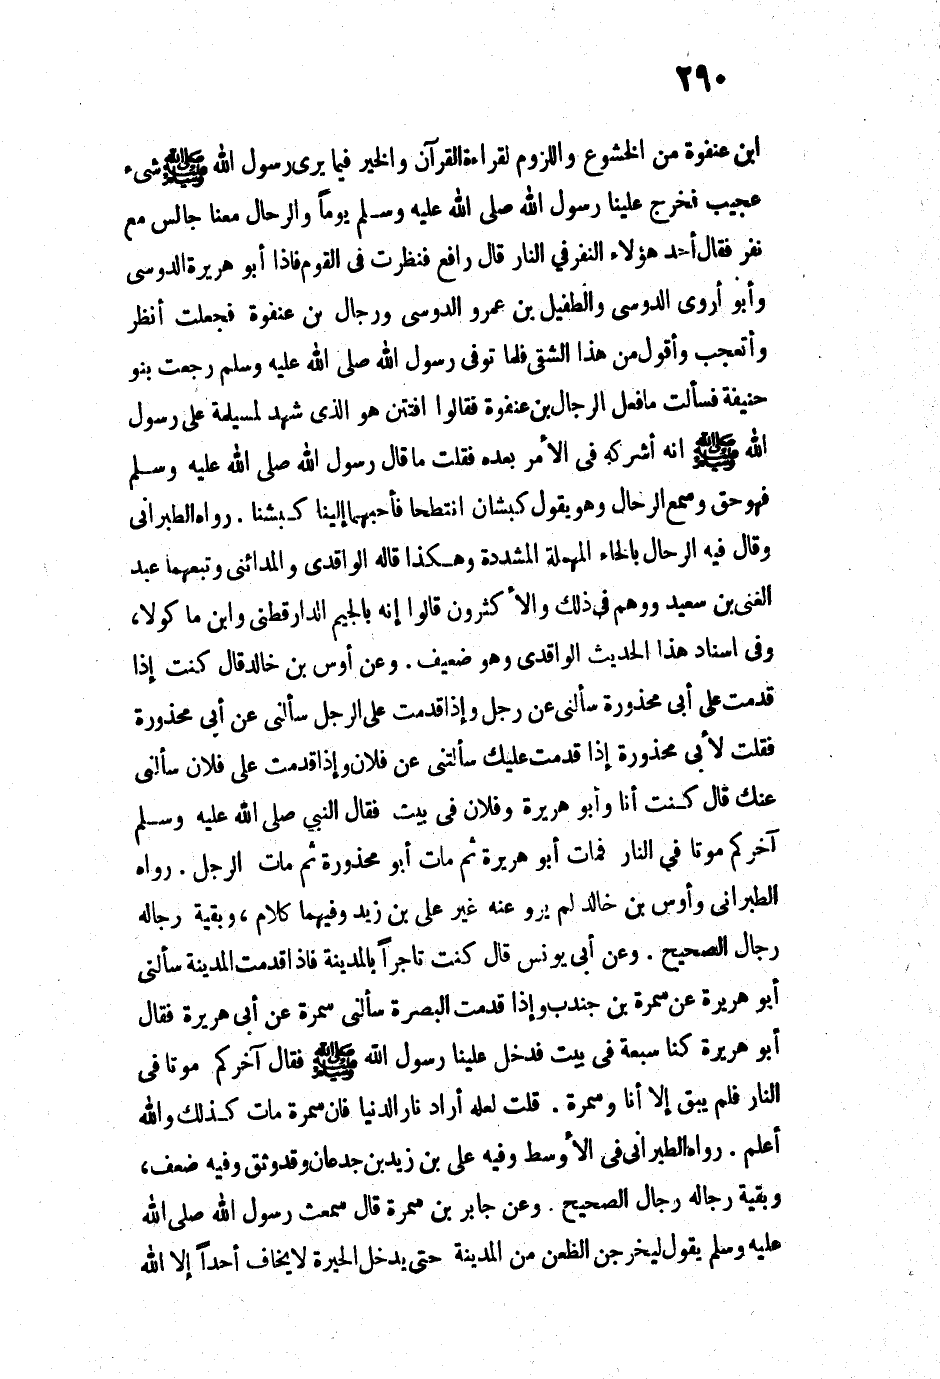 ٢٩٠
ابن عنفوة من الخشوع واللزوم لقراءة القرآن والخير فيما يرى رسول الله ﷺ شيء
عجيب فخرج علينا رسول الله صلى الله عليه وسلم يوماً والرحال معنا جالس مع
نفر فقال أحد هؤلاء النفر في النار قال رافع فنظرت فى القوم فاذا أبو هريرة الدوسى
وأبو أروى الدوسى والطفيل بن عمرو الدوسى ورجال بن عنفوة فجعلت أنظر
وأتعجب وأقول من هذا الشقى فلما توفى رسول الله صلى الله عليه وسلم رجعت بنو
حنيفة فسألت مافعل الرجال بن عنفوة فقالوا افتتن هو الذى شهد لمسيلمة على رسول
الله ﷺ انه أشركه فى الأمر بعده فقلت ماقال رسول الله صلى الله عليه وسلم
فهو حق وسمع الرحال وهو يقول كبشان انتطحا فأحبهما إلينا كبشنا . رواه الطبرانى
وقال فيه الرحال بالحاء المهملة المشددة وهكذا قاله الواقدى والمدائنى وتبعهما عبد
الغنى بن سعيد ووهم فى ذلك والأكثرون قالوا إنه بالجيم الدارقطنى وابن ماكولا،
وفى اسناد هذا الحديث الواقدى وهو ضعيف . وعن أوس بن خالد قال كنت إذا
قدمت على أبى محذورة سألنى عن رجل وإذا قدمت على الرجل سألنى عن أبى محذورة
فقلت لأبى محذورة إذا قدمت عليك سألتنى عن فلان وإذا قدمت على فلان سألنى
عنك قال كنت أنا وأبو هريرة وفلان فى بيت فقال النبي صلى الله عليه وسلم
آخركم موتا في النار فمات أبو هريرة ثم مات أبو محذورة ثم مات الرجل . رواه
الطبرانى وأوس بن خالد لم يرو عنه غير على بن زيد وفيهما كلام ، وبقية رجاله
رجال الصحيح . وعن أبى يونس قال كنت تاجراً بالمدينة فاذا قدمت المدينة سألنى
أبو هريرة عن سمرة بن جندب وإذا قدمت البصرة سألنى سمرة عن أبى هريرة فقال
أبو هريرة كنا سبعة فى بيت فدخل علينا رسول الله ﷺ فقال آخركم موتا فى
النار فلم يبق إلا أنا وسمرة . قلت لعله أراد نار الدنيا فان سمرة مات كذلك والله
أعلم . رواه الطبرانى فى الأوسط وفيه على بن زيد بن جدعان وقد وثق وفيه ضعف،
وبقية رجاله رجال الصحيح . وعن جابر بن سمرة قال سمعت رسول الله صلى الله
عليه وسلم يقول ليخرجن الظعن من المدينة حتى يدخل الحيرة لا يخاف أحداً إلا الله